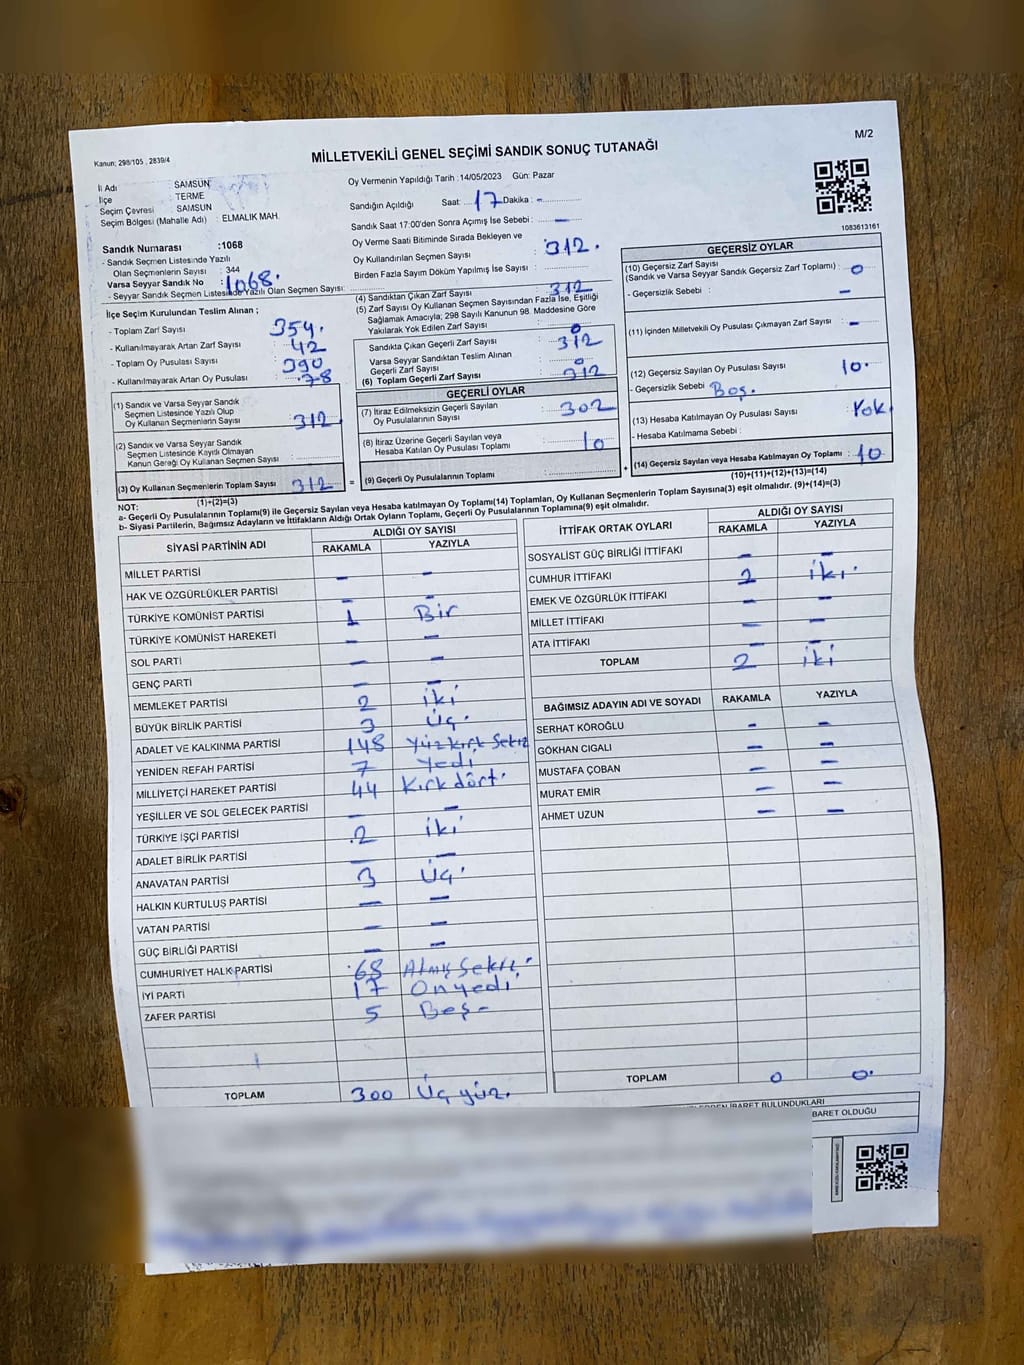 M/2
Kanun; 298/105 , 2839/4
MİLLETVEKİLİ GENEL SEÇİMİ SANDIK SONUÇ TUTANAĞI
İl Adı : SAMSUN
İlçe : TERME
Seçim Çevresi : SAMSUN
Seçim Bölgesi (Mahalle Adı) : ELMALIK MAH.
Sandık Numarası :1068
- Sandık Seçmen Listesinde Yazılı
Olan Seçmenlerin Sayısı : 344
Varsa Seyyar Sandık No : 1068.
- Seyyar Sandık Seçmen Listesinde Yazılı Olan Seçmen Sayısı:
İlçe Seçim Kurulundan Teslim Alınan ;
- Toplam Zarf Sayısı : 354.
- Kullanılmayarak Artan Zarf Sayısı : 42
- Toplam Oy Pusulası Sayısı : 390
- Kullanılmayarak Artan Oy Pusulası : 78
(1) Sandık ve Varsa Seyyar Sandık
Seçmen Listesinde Yazılı Olup
Oy Kullanan Seçmenlerin Sayısı : 312
(2) Sandık ve Varsa Seyyar Sandık
Seçmen Listesinde Kayıtlı Olmayan
Kanun Gereği Oy Kullanan Seçmen Sayısı :
(3) Oy Kullanan Seçmenlerin Toplam Sayısı : 312
(1)+(2)=(3)
Oy Vermenin Yapıldığı Tarih :14/05/2023 Gün: Pazar
Sandığın Açıldığı Saat: 17 Dakika : -
Sandık Saat 17:00'den Sonra Açımış İse Sebebi: -
Oy Verme Saati Bitiminde Sırada Bekleyen ve
Oy Kullandırılan Seçmen Sayısı : 312.
Birden Fazla Sayım Döküm Yapılmış İse Sayısı :
(4) Sandıktan Çıkan Zarf Sayısı : 312
(5) Zarf Sayısı Oy Kullanan Seçmen Sayısından Fazla İse, Eşitliği
Sağlamak Amacıyla; 298 Sayılı Kanunun 98. Maddesine Göre
Yakılarak Yok Edilen Zarf Sayısı : 0
Sandıkta Çıkan Geçerli Zarf Sayısı : 312
Varsa Seyyar Sandıktan Teslim Alınan
Geçerli Zarf Sayısı : 0
(6) Toplam Geçerli Zarf Sayısı : 312
GEÇERLİ OYLAR
(7) İtiraz Edilmeksizin Geçerli Sayılan
Oy Pusulalarının Sayısı : 302
(8) İtiraz Üzerine Geçerli Sayılan veya
Hesaba Katılan Oy Pusulası Toplamı : 10
= (9) Geçerli Oy Pusulalarının Toplamı : +
1083613161
GEÇERSİZ OYLAR
(10) Geçersiz Zarf Sayısı
(Sandık ve Varsa Seyyar Sandık Geçersiz Zarf Toplamı) : 0
- Geçersizlik Sebebi : -
(11) İçinden Milletvekili Oy Pusulası Çıkmayan Zarf Sayısı : -
(12) Geçersiz Sayılan Oy Pusulası Sayısı : 10.
- Geçersizlik Sebebi : Boş.
(13) Hesaba Katılmayan Oy Pusulası Sayısı : Yok
- Hesaba Katılmama Sebebi :
(14) Geçersiz Sayılan veya Hesaba Katılmayan Oy Toplamı : 10
(10)+(11)+(12)+(13)=(14)
NOT:
a- Geçerli Oy Pusulalarının Toplamı(9) ile Geçersiz Sayılan veya Hesaba katılmayan Oy Toplamı(14) Toplamları, Oy Kullanan Seçmenlerin Toplam Sayısına(3) eşit olmalıdır. (9)+(14)=(3)
b- Siyasi Partilerin, Bağımsız Adayların ve İttifakların Aldığı Ortak Oyların Toplamı, Geçerli Oy Pusulalarının Toplamına(9) eşit olmalıdır.
SİYASİ PARTİNİN ADI ALDIĞI OY SAYISI
RAKAMLA YAZIYLA
MİLLET PARTİSİ - -
HAK VE ÖZGÜRLÜKLER PARTİSİ - -
TÜRKİYE KOMÜNİST PARTİSİ 1 Bir
TÜRKİYE KOMÜNİST HAREKETİ - -
SOL PARTİ - -
GENÇ PARTİ - -
MEMLEKET PARTİSİ 2 iki
BÜYÜK BİRLİK PARTİSİ 3 Üç.
ADALET VE KALKINMA PARTİSİ 148 Yüzkırk Sekiz
YENİDEN REFAH PARTİSİ 7 Yedi
MİLLİYETÇİ HAREKET PARTİSİ 44 Kırk dört.
YEŞİLLER VE SOL GELECEK PARTİSİ - -
TÜRKİYE İŞÇİ PARTİSİ 2 iki
ADALET BİRLİK PARTİSİ - -
ANAVATAN PARTİSİ 3 Üç.
HALKIN KURTULUŞ PARTİSİ - -
VATAN PARTİSİ - -
GÜÇ BİRLİĞİ PARTİSİ - -
CUMHURİYET HALK PARTİSİ 68 Atmış Sekiz.
İYİ PARTİ 17 Onyedi
ZAFER PARTİSİ 5 Beş-
TOPLAM 300 Üç yüz.
İTTİFAK ORTAK OYLARI ALDIĞI OY SAYISI
RAKAMLA YAZIYLA
SOSYALİST GÜÇ BİRLİĞİ İTTİFAKI - -
CUMHUR İTTİFAKI 2 iki.
EMEK VE ÖZGÜRLÜK İTTİFAKI - -
MİLLET İTTİFAKI - -
ATA İTTİFAKI - -
TOPLAM 2 iki
BAĞIMSIZ ADAYIN ADI VE SOYADI RAKAMLA YAZIYLA
SERHAT KÖROĞLU - -
GÖKHAN CIGALI - -
MUSTAFA ÇOBAN - -
MURAT EMİR - -
AHMET UZUN - -
TOPLAM 0 0.
İBARET BULUNDUKLARI
BARET OLDUĞU